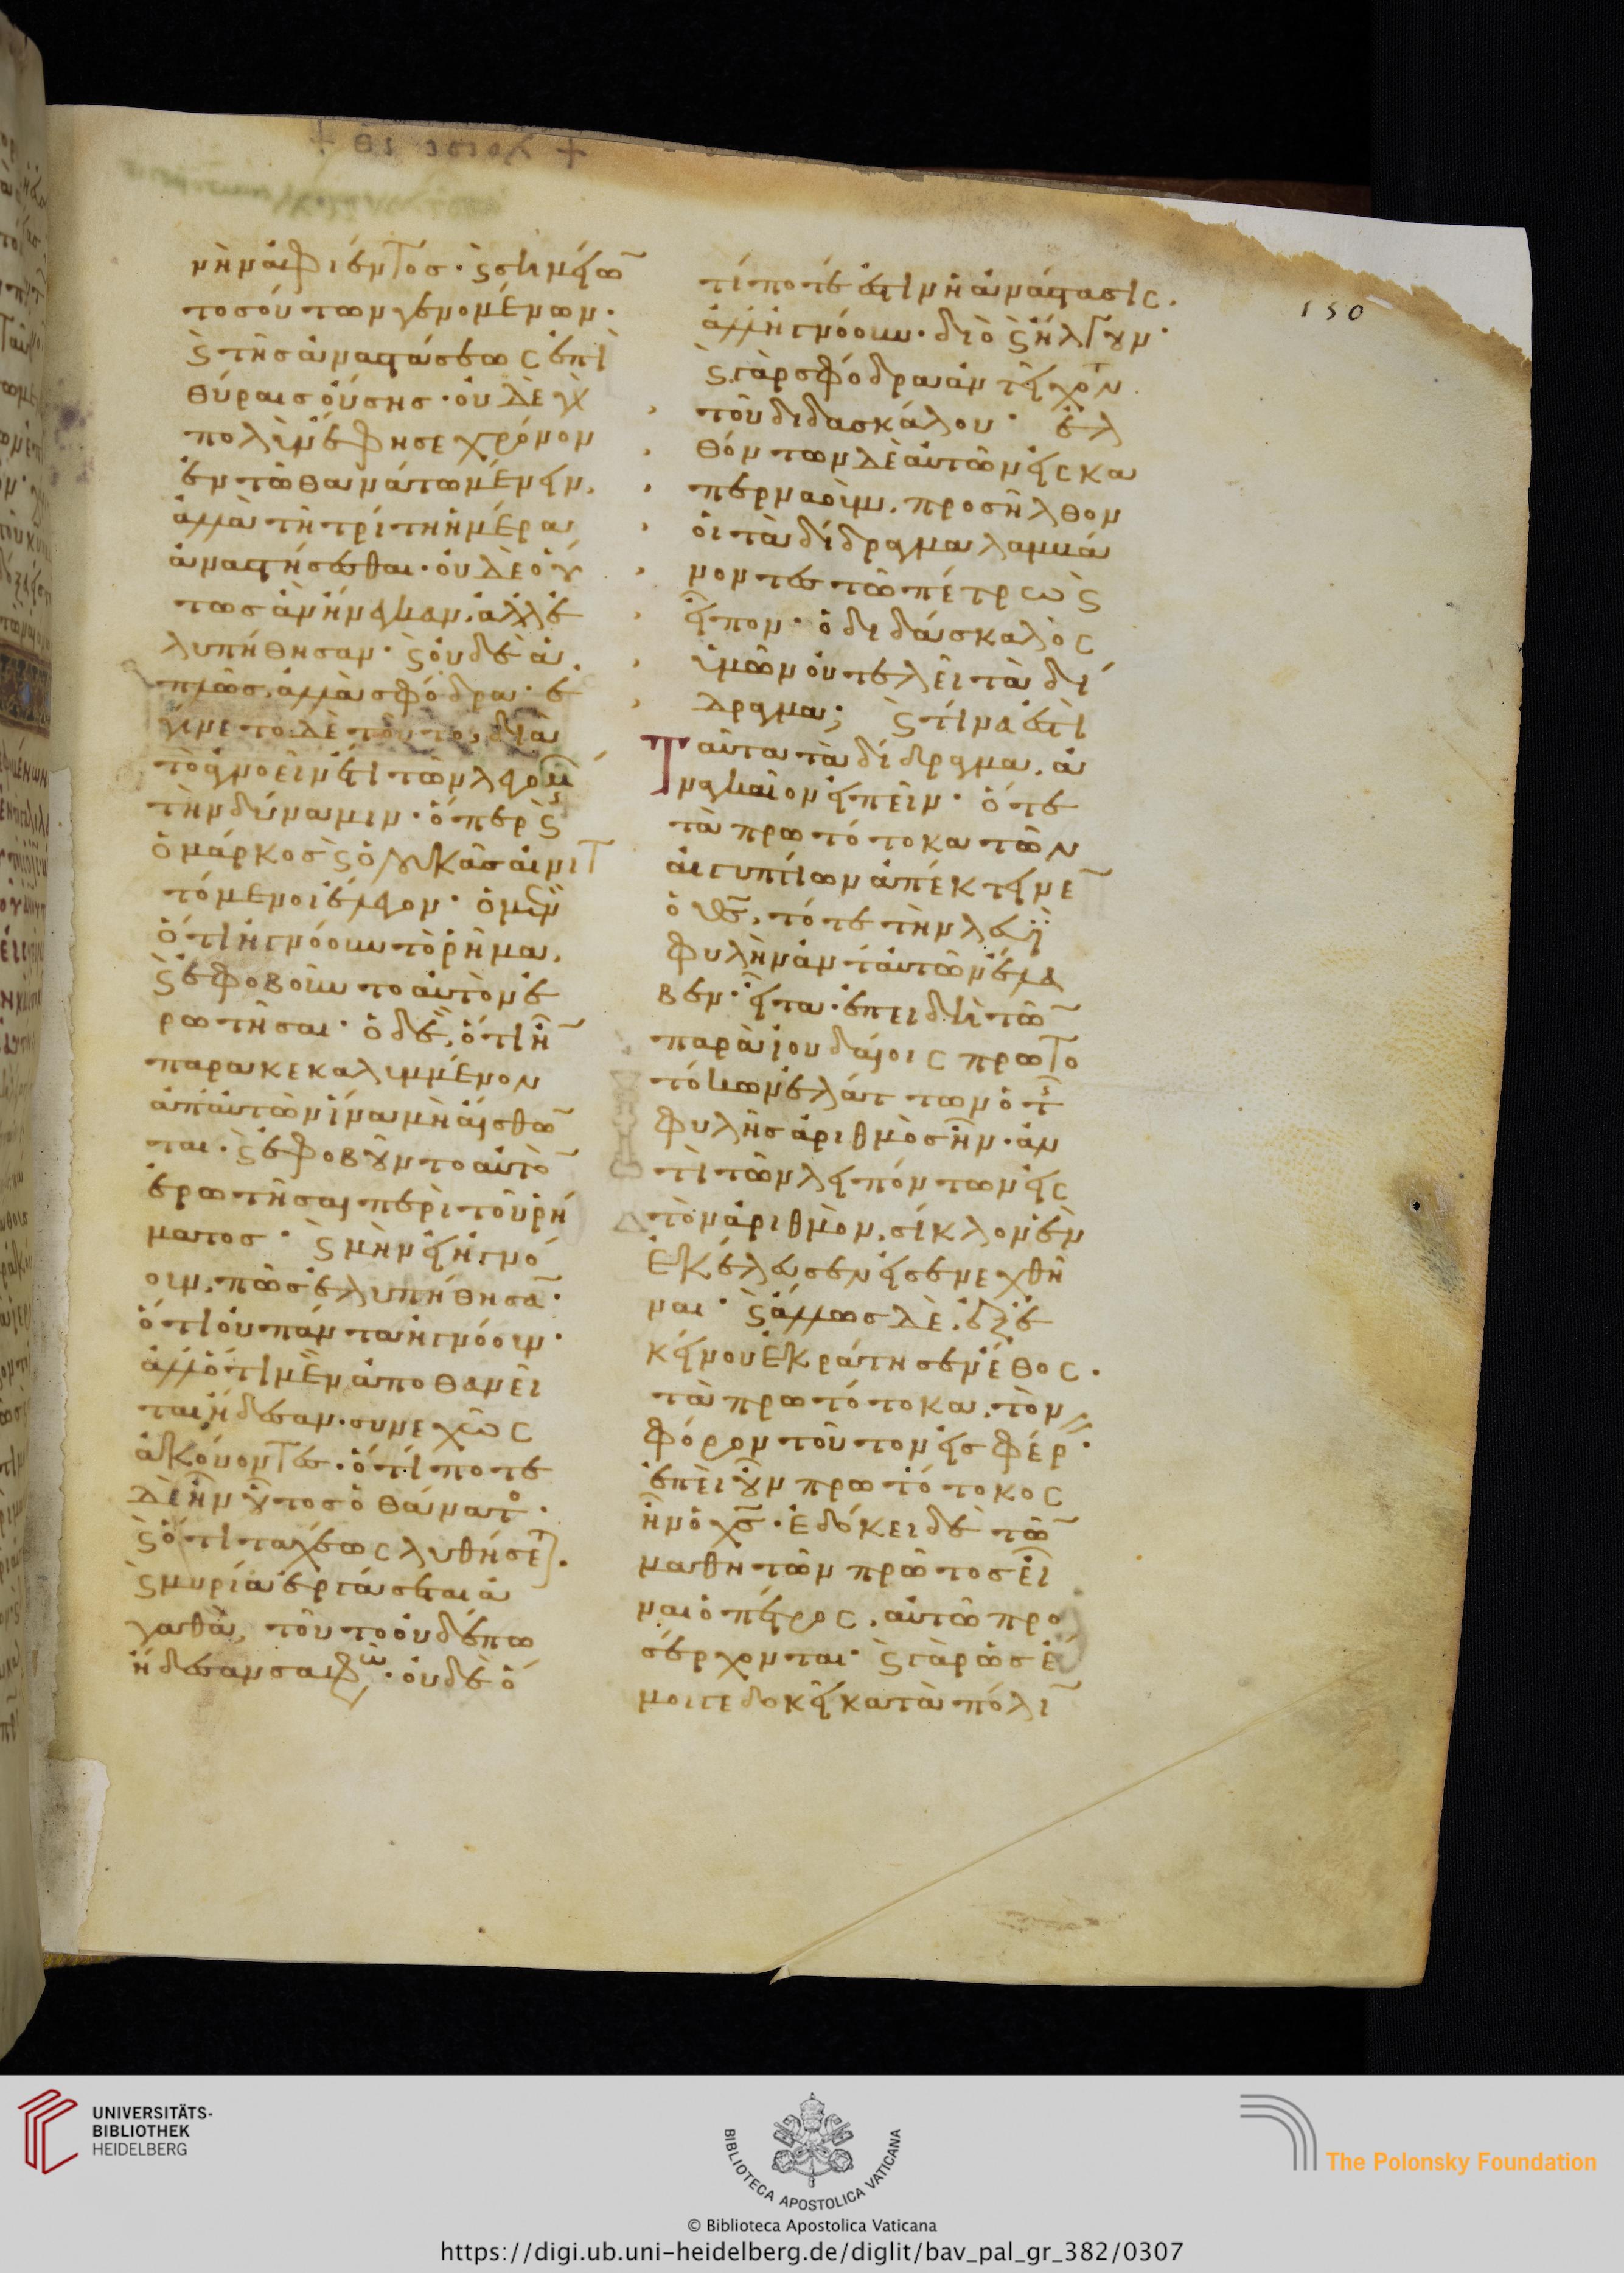 μὴν ἀφιέντος. ϛ σημείω̅
τοσούτων γενομένων.
ϛ τῆς ἀναστάσεως ἐπὶ
θύραις οὔσης. οὐ δὲ γὰρ
πολὺν ἔφησε χρόνον
ἐν τῶ θανάτω μένειν.
ἀλλὰ τῆ τρίτη ἡμέρα
ἀναστήσεσθαι. οὐ δὲ οὕ
τως ἀνήνεγκαν. ἀλλ ἐ
λυπήθησαν. ϛ οὐδὲ ἁ
πλῶς. ἀλλὰ σφόδρα. ἐ
γίνετο δὲ τοῦτο, διὰ
τὸ ἀγνοεῖν ἔτι τῶν λεγομ
τὴν δύναμιν. ὅπερ ϛ
ὁ μάρκος ϛ ὁ λουκᾶς αἰνιτ
τόμενοι ἔλεγον. ὁ μὲν
ὅτι ἠγνόουν τὸ ῥῆμα.
ϛ ἐφοβοῦντο αὐτὸν ἐ
ρωτῆσαι. ὁ δὲ, ὅτι ἦ̅
παρακεκαλυμμένον
ἀπ αὐτῶν ἵνα μὴ αἴσθω̅
ται. ϛ ἐφοβοῦντο αὐτὸ̅
ἐρωτῆσαι περὶ τοῦ ῥή
ματος. ϛ μὴν εἰ ἠγνό
ουν, πῶς ἐλυπήθησα̅.
ὅτι οὐ πάντα ἠγνόουν.
ἀλλ ὅτι μὲν ἀποθανεῖ
ται ἤδεσαν. συνεχῶς
ἀκούοντες. ὅ τί ποτε
δὲ ἦν οὗτος ὁ θάνατο.
ϛ ὅτι ταχέως λυθήσετ.
ϛ μυρία ἐργάσεται ἀ
γαθὰ, τοῦτο οὐδέπω
ἤδεσαν σαφῶ. οὐδὲ ὅ
τί ποτε ἐστὶν ἡ ἀνάστασις.
ἀλλ ἠγνόουν. διὸ ϛ ἤλγουν.
ϛ γὰρ σφόδρα ἀντείχοντο
τοῦ διδασκάλου. ἐλ
θόντων δὲ αὐτῶν εἰς κα
περναοὺμ, προσῆλθον
οἱ τὰ δίδραγμα λαμβά
νοντες τῶ πέτρω ϛ
εἶπον. ὁ διδάσκαλος
ὑμῶν οὐ τελεῖ τὰ δί
δραγμα; ϛ τίνα ἐστὶ
Ταῦτα τὰ δίδραγμα. ἀ
ναγκαῖον εἰπεῖν. ὅτε
τὰ πρωτότοκα τῶν
αἰγυπτίων ἀπέκτεινε̅
ὁ θς̅. τότε τὴν λευὶ
φυλὴν ἀντ αὐτῶν ἔλα
βεν. εἶτα ἐπειδὴ τῶ̅
παρὰ ἰουδαίοις πρωτο
τόκων ἐλάττων ὁ τῆς
φυλῆς ἀριθμὸς ἦν. ἀν
τὶ τῶν λειπόντων εἰς
τὸν ἀριθμὸν, σίκλον
ἐκέλευσεν εἰσενεχθῆ
ναι. ϛ ἄλλως δὲ. ἐξ ἐ
κείνου ἐκράτησεν ἔθος.
τὰ πρωτότοκα, τὸν
φόρον τοῦτον εἰσφέρ.
ἐπεὶ οὖν πρωτότοκος
ἦν ὁ χς̅. ἐδόκει δὲ τῶ̅
μαθητῶν πρῶτος εἶ
ναι ὁ πέτρος. αὐτῶ προ
σέρχονται. ϛ γὰρ ὡς ἔ
μοιγε δοκεῖ κατὰ πόλι̅
150
UNIVERSITÄTS-
BIBLIOTHEK
HEIDELBERG
BIBLIOTECA APOSTOLICA VATICANA
© Biblioteca Apostolica Vaticana
The Polonsky Foundation
https://digi.ub.uni-heidelberg.de/diglit/bav_pal_gr_382/0307